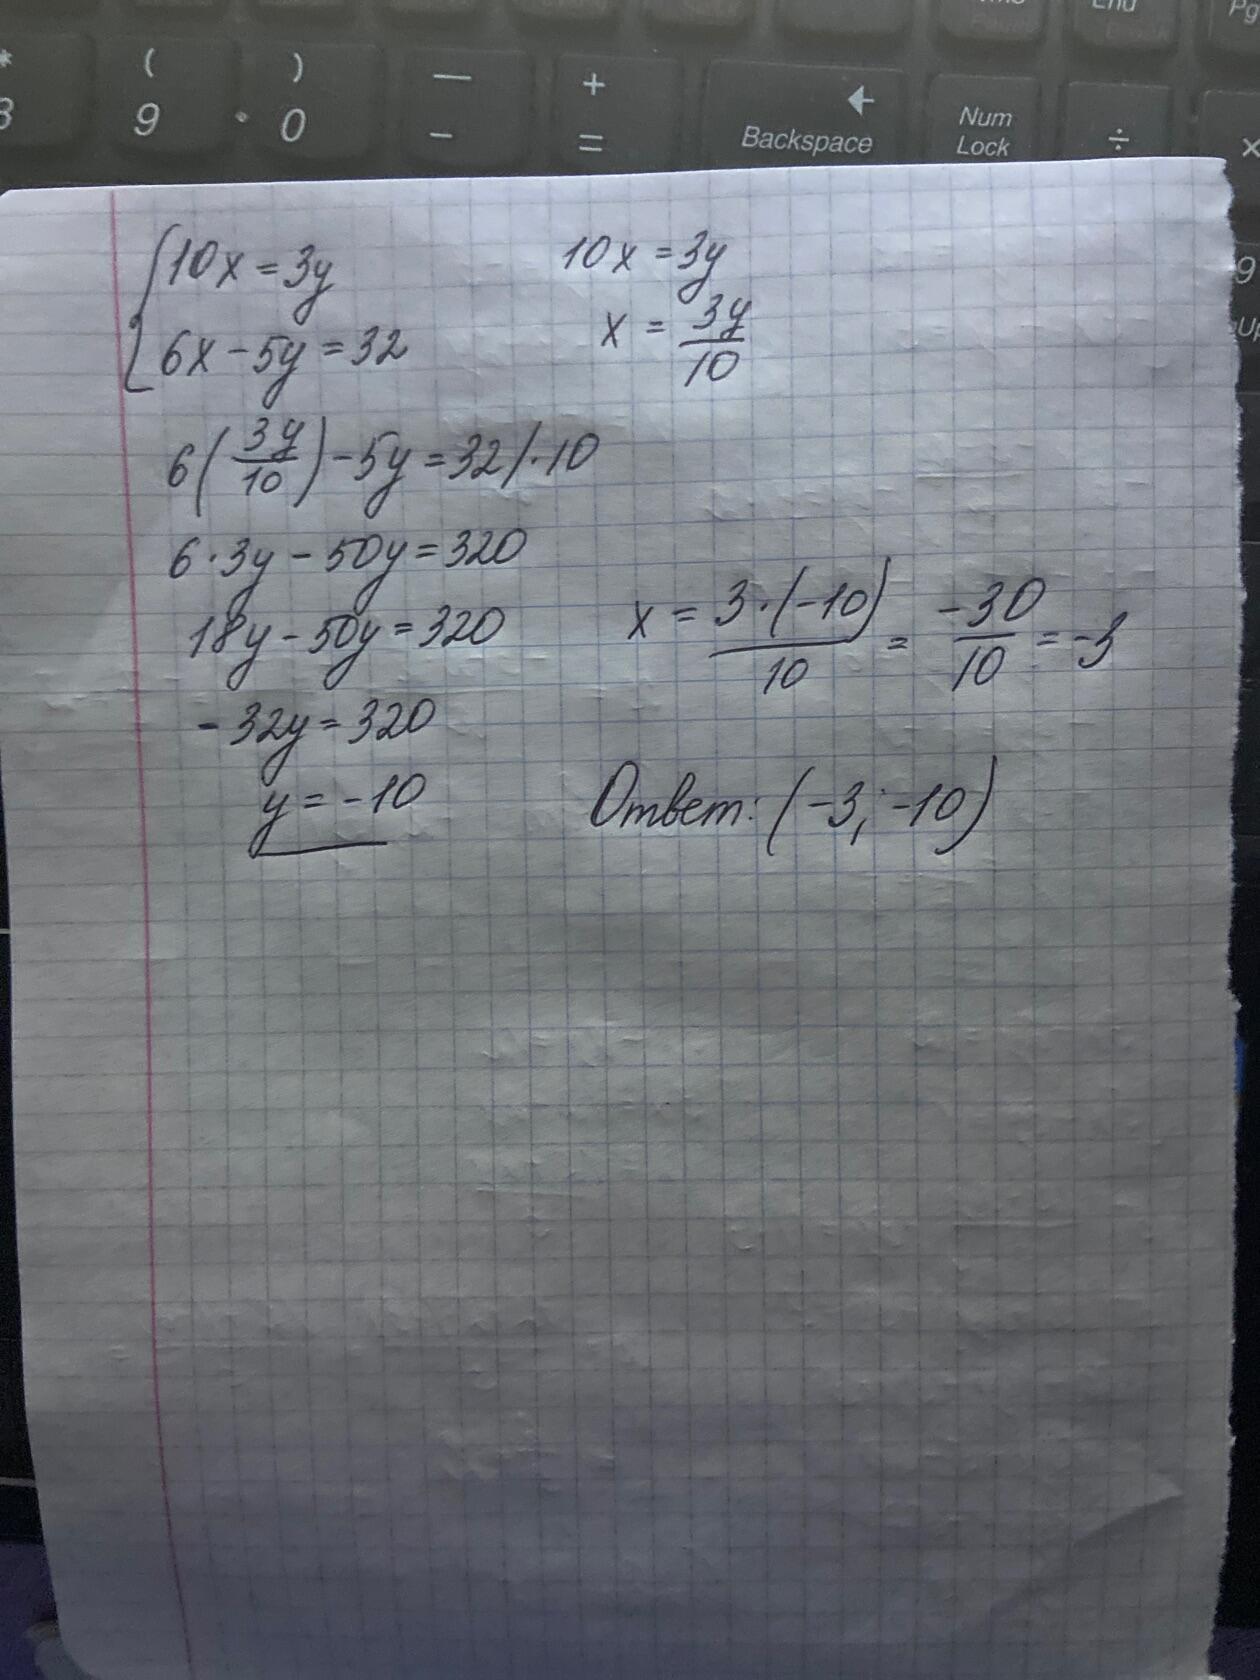 * ( ) — + ← End Pg
8 9 0 - = Backspace Num Lock ÷ ×
9
{10x = 3y
6x - 5y = 32
10x = 3y
x = 3y/10
6(3y/10) - 5y = 32 /·10
6·3y - 50y = 320
18y - 50y = 320
-32y = 320
y = -10
x = 3·(-10)/10 = -30/10 = -3
Ответ: (-3; -10)